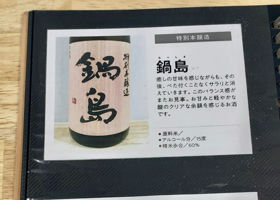 特別本醸造
鍋島
癒しの甘味を感じながらも、その
後、べた付くことなくサラリと消
えていきます。このバランス感が
またお見事。お甘みと軽やかな
酸のクリアな余韻を感じるお酒
です。
●原料米／
●アルコール分／15度
●精米歩合／60%
特別本醸造
鍋島